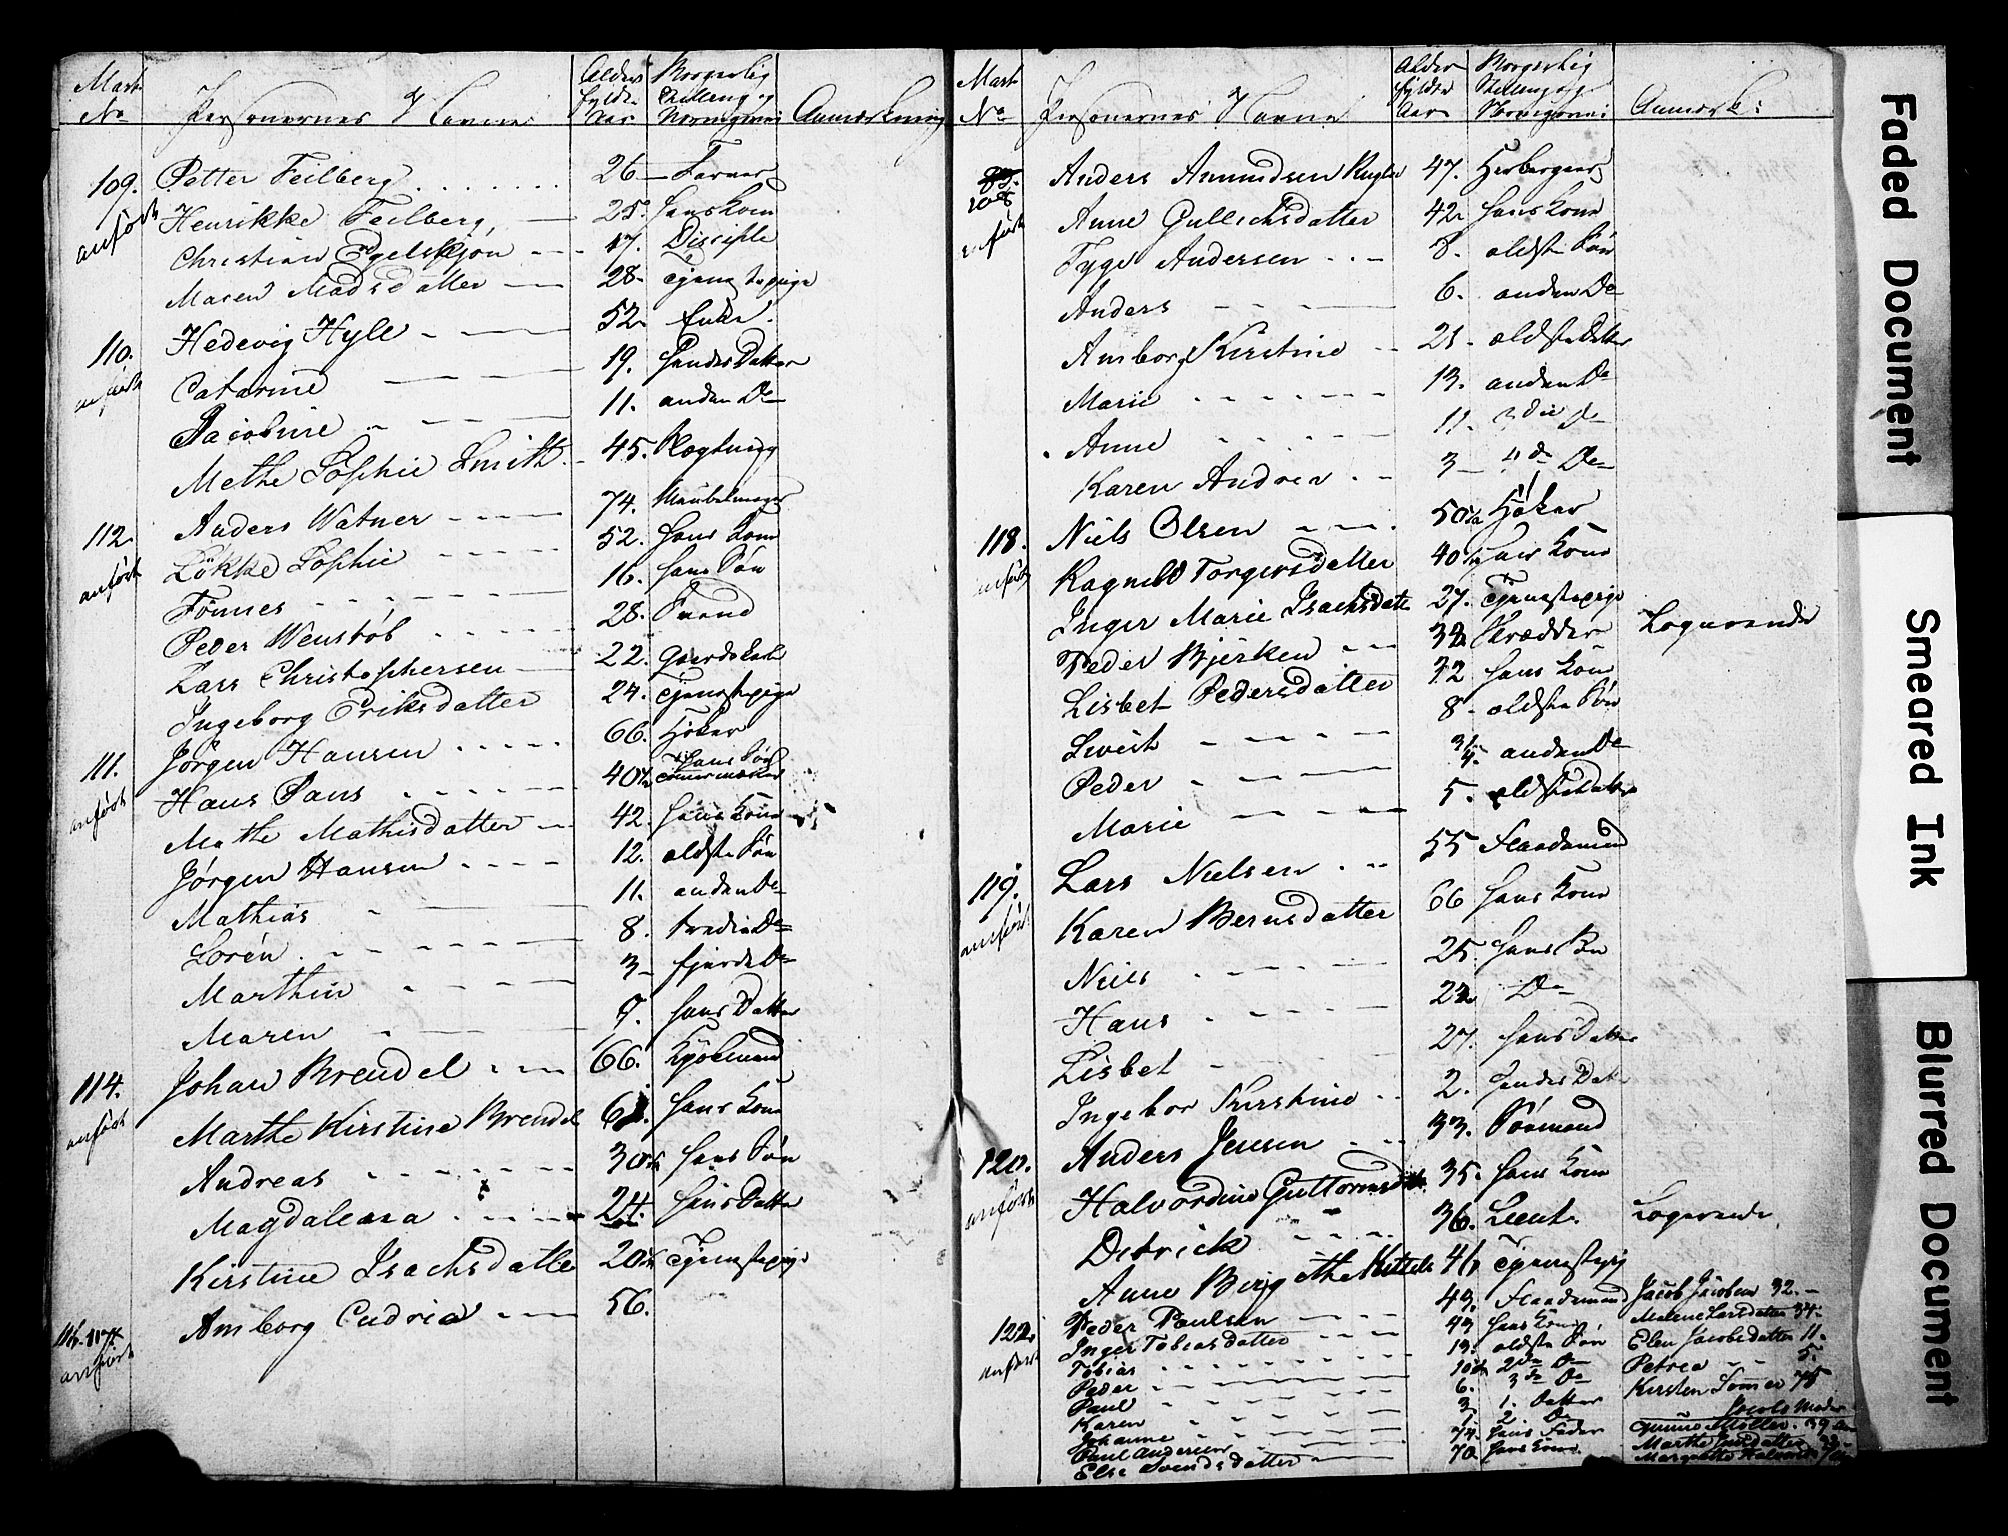 Matr. No Personernes Navne Alder fyldte Aar Borgerlig Stilling og Næringsvei Anmærkning
109. Petter Feilberg 26 Farver
anført Henrikke Feilberg 25 hans Kone
Christian Egelskjøn 17. Disciple
Maren Madsdatter 28. Tjenestepige
110. Hedevig Hyll 52 Enke.
anført Catarine 19. hendes Datter
Jacobine 11. anden Do
Methe Sophie Smith 45. Slægtning
112. Anders Watner 74. Meubelmager
anført Løkke Sophie 52. hans Kone
Tønnes 16. hans Søn
Peder Wenstøb 28. Svend
Lars Christophersen 22. Gaardskarl
Ingeborg Eriksdatter 24. Tjenestepige
111. Jørgen Hansen 66. Høker
anført Hans Paus 40 hans Søn
Mathe Mathisdatter 42. hans Kone
Jørgen Hansen 12. ældste Søn
Mathias 11. anden Do
Sorén 8. tredie Do
Marthin 3 fjerde Do
Maren 9. hans Datter
114. Johan Brendel 66. Kjøbmand
anført Marthe Kirstine Brendel 61. hans Kone
Andreas 30 hans Søn
Magdalena 24. hans Datter
Kirstine Isachsdatter 20 Tjenestepige
Amborg Cudria 56.
116. 117 anført
Matr No Personernes Navne Alder fyldte Aar Borgerlig Stilling og Næringsvei: Anmærk:
108 Anders Amundsen 47. Herbergeer
anført Anne Gullichsdatter 42 hans Kone
Tyge Andersen 8. ældste Søn
Anders 6. anden Do
Amborg Kirstine 21 ældste Datter
Marie 13. anden Do
Anne 11. 3die Do
Karen Andrea 3 4de Do
118. Niels Olsen 50 Høker
anført Ragnild Torgersdatter 40 hans Kone
Inger Marie Isachsdatter 27. Tjenestepige
Peder Bjerken 38 Skrædder Logerende
Lisbet Pedersdatter 32 hans Kone
Sivert 8 ældste Søn
Peder anden Do
Marie 5. ældste Datter
119. Lars Nielsen 55 Flaadsmand
anført Karen Bernsdatter 66 hans Kone
Niels 25 hans Søn
Hans 22 Do
Lisbet 27. hans Datter
Ingebor Kirstine 2. hendes Dat
120. Anders Jensen 33. Sømand
anført Halvordine Guttormsdatter 35. hans Kone
Detrick 36. Lieut. Logerende
Anne Birgithe Kittels 41 Tjenestepig
122. Peder Paulsen 49. Flaadsmand Jacob Jacobsen 32.
anført Inger Tobiasdatter 49 hans Kone Malene Larsdatter 34.
Tobias 19. ældste Søn Elen Jacobsdatter 11.
Peder 10 2den Do Petrea 5.
Paul 6. 3de Do Kirsten Sommer 75
Karen 3 1. Datter Jacobs Moder
Johanne 1. 2 Do Møller. 39
Paul Andersen 74. hans Fader Marthe
Else Svendsdatter 70. hans Kone Margrethe
Faded Document
Smeared Ink
Blurred Document